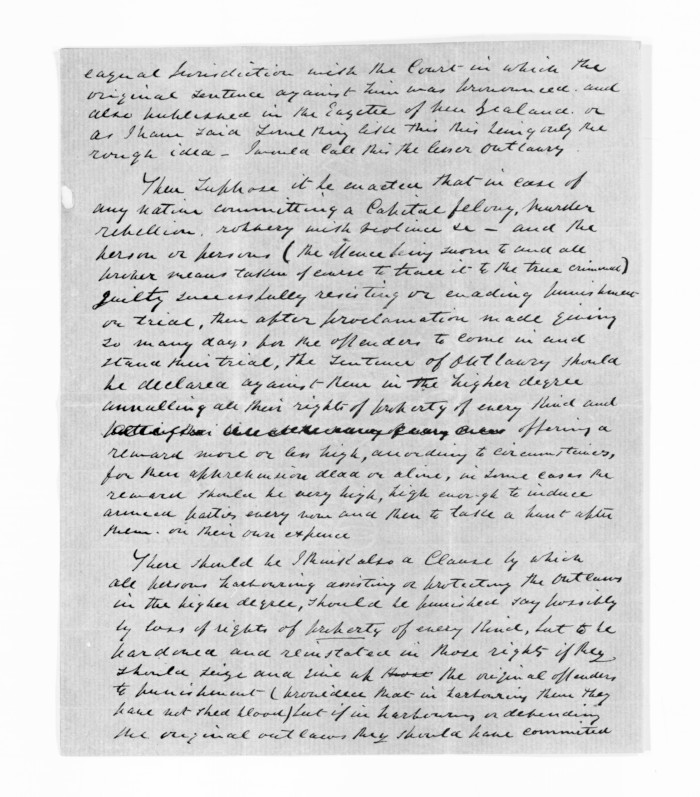 eaqual Jurisdiction with the Court in which the
original sentence against him was pronounced. and
also published in the Gazette of New Zealand. or
as I have said something like this this being only the
rough idea – I would call this the lesser Outlawry.
Then suppose it be enacted that in case of
any native committing a Capital felony, murder
rebellion. robbery with violence &c – and the
person or persons (the offence being sworn to and all
proper means taken of course to trace it to the true criminal)
guilty successfully resisting or evading punishment
or trial, then after proclamation made giving
so many days for the offenders to come in and
stand their trial, the sentence of Outlawry should
be declared against them in the higher degree
annulling all their rights of property of every kind and
offering a
reward more or less high, according to circumstances,
for their apprehension dead or alive, in some cases the
reward should be very high, high enough to induce
armed parties every now and then to take a hunt after
them. on their own expence
There should be I think also a Clause by which
all persons harbouring assisting or protecting the Outlaws
in the higher degree, should be punished say possibly
by loss of rights of property of every kind, but to be
pardoned and reinstated in those rights if they
should seize and give up the original offenders
to punishment (provided that in harbouring them they
have not shed blood) but if in harbouring or defending
the original outlaws they should have committed